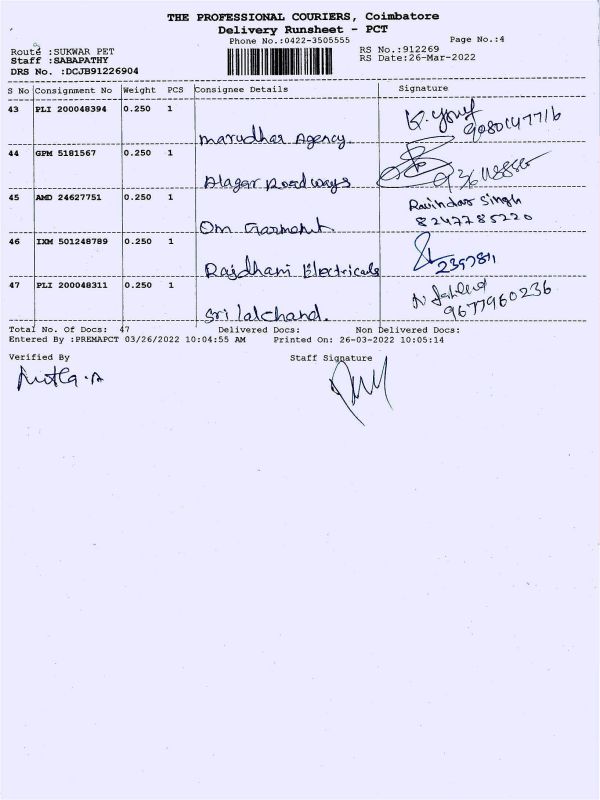 THE PROFESSIONAL COURIERS, Coimbatore
Delivery Runsheet - PCT
Phone No.:0422-3505555 Page No.:4
Route :SUKWAR PET RS No.:912269
Staff :SABAPATHY RS Date:26-Mar-2022
DRS No. :DCJB91226904
S No Consignment No Weight PCS Consignee Details Signature
43 PLI 200048394 0.250 1
marudhar Agency. 9080147716
44 GPM 5181567 0.250 1
Alagar Roadways
45 AMD 24627751 0.250 1 Ravindar Singh
Om Garment. 8247785220
46 IXM 501248789 0.250 1
Rajdhani Electricals
47 PLI 200048311 0.250 1
Sri lalchand. 9677960236
Total No. Of Docs: 47 Delivered Docs: Non Delivered Docs:
Entered By :PREMAPCT 03/26/2022 10:04:55 AM Printed On: 26-03-2022 10:05:14
Verified By Staff Signature